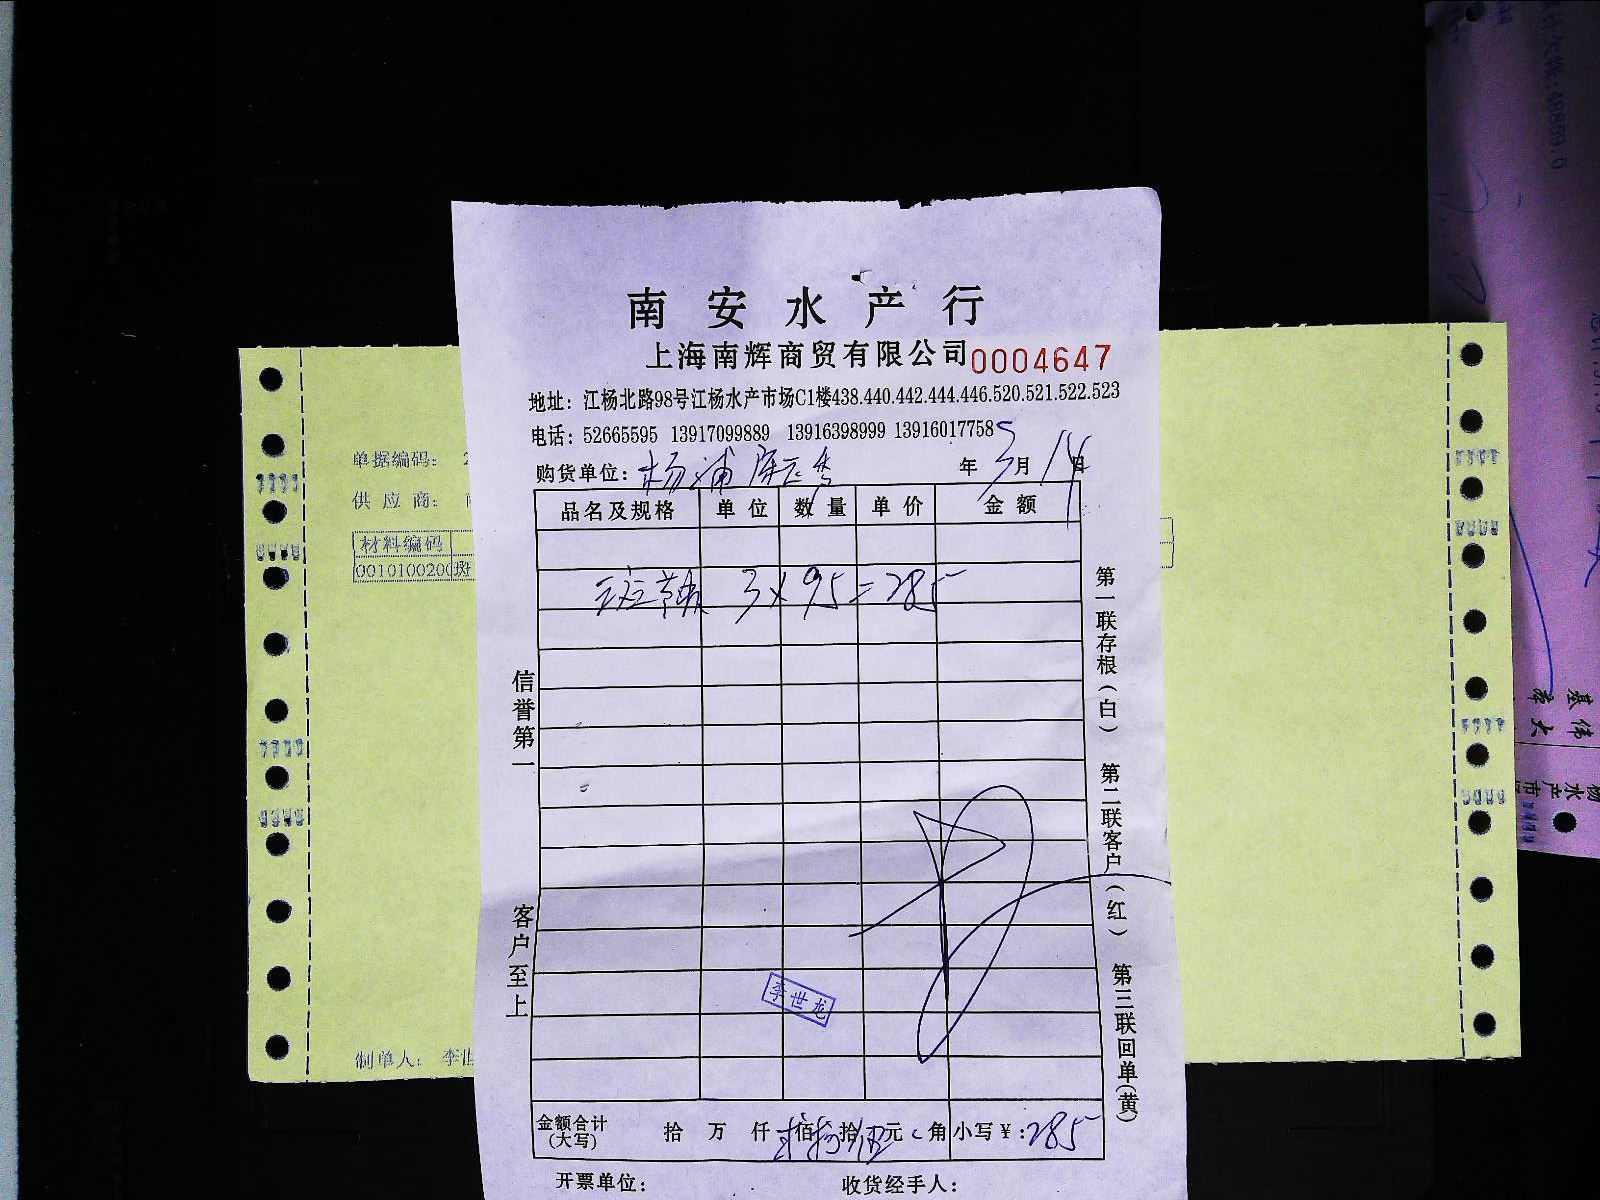 南安水产行
上海南辉商贸有限公司 0004647
地址：江杨北路98号江杨水产市场C1楼438.440.442.444.446.520.521.522.523
电话：52665595 13917099889 13916398999 13916017758
购货单位：杨浦 年 5月14日
品名及规格 单位 数量 单价 金额
斑 3×95=285
信誉第一
客户至上
第一联存根（白） 第二联客户（红） 第三联回单（黄）
李世龙
金额合计（大写） 拾 万 仟 佰 拾 元 角 小写￥：285
开票单位： 收货经手人：
单据编码： 2
供应商：
材料编码
0010100200 斑
制单人： 李世
计欠账：48859.0
水产市